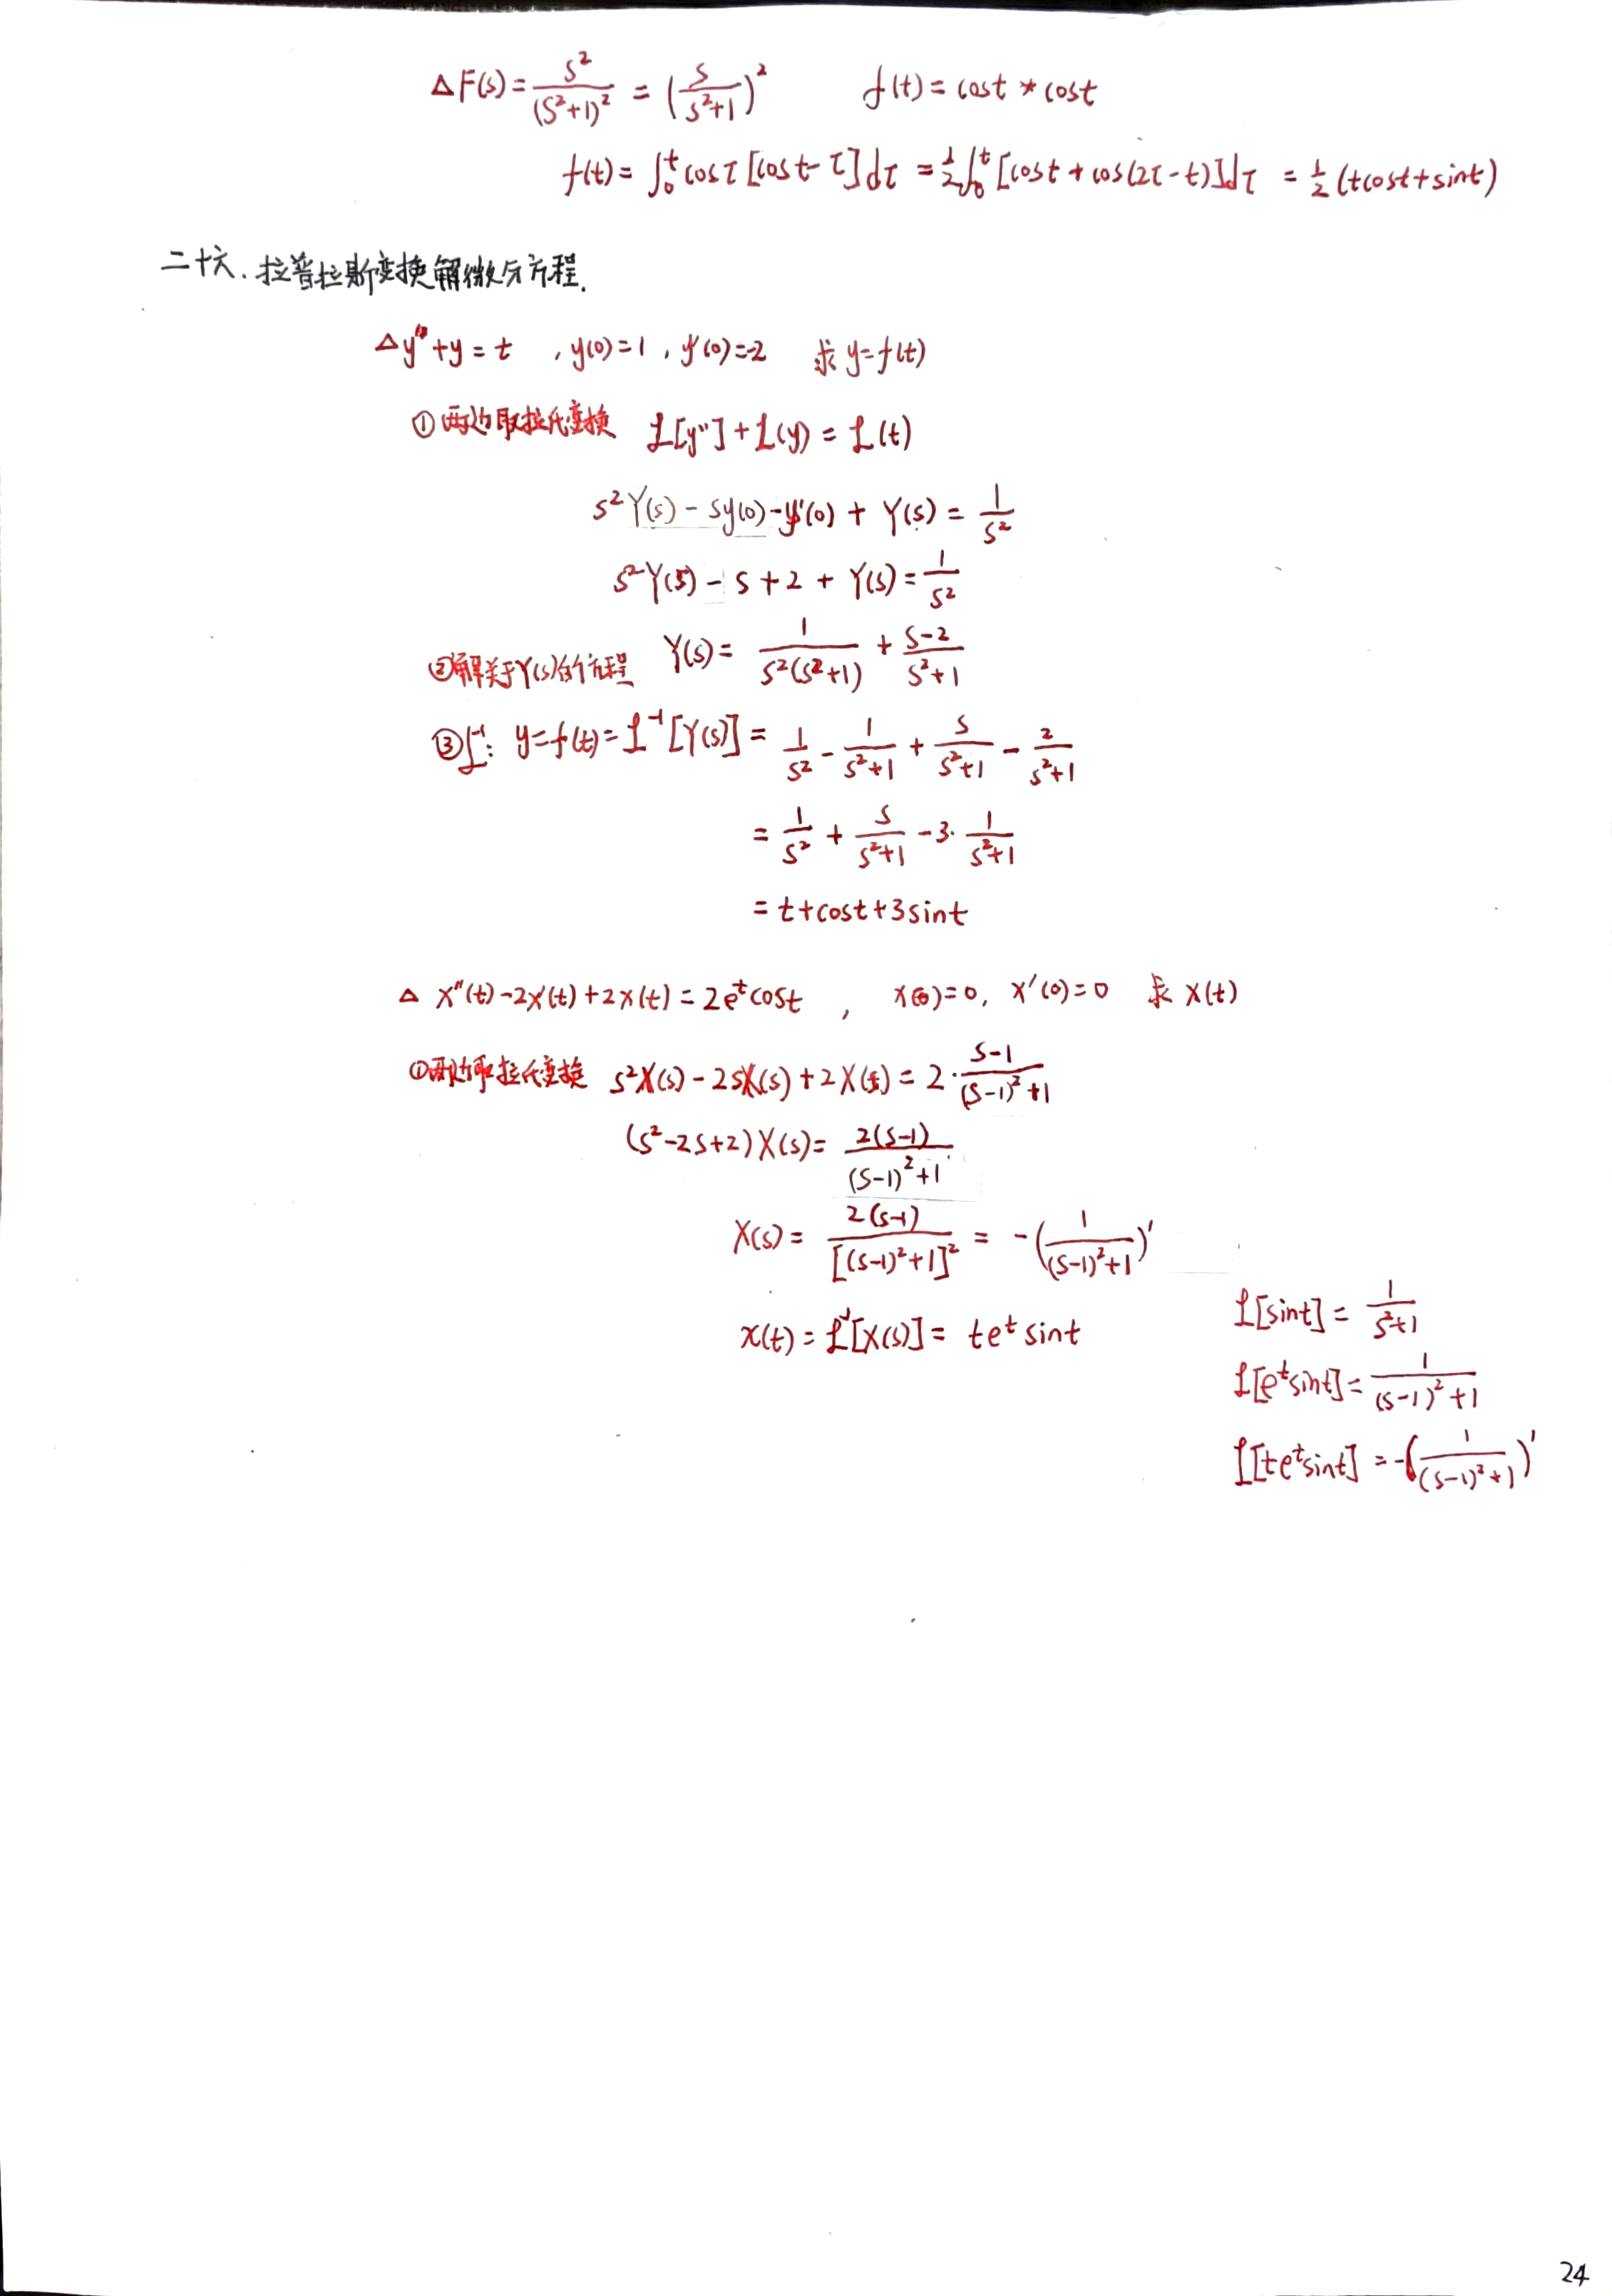 △ F(s) = s²/(s²+1)² = (s/(s²+1))² f(t) = cost * cost
f(t) = ∫₀ᵗ cosτ [cost-τ] dτ = ½∫₀ᵗ [cost + cos(2τ-t)] dτ = ½ (tcost+sint)
二十六. 拉普拉斯变换解微分方程.
△ y″+y = t , y(0)=1 , y′(0)=-2 求 y=f(t)
①两边取拉氏变换 ℒ[y″] + ℒ(y) = ℒ(t)
s²Y(s) - sy(0) - y′(0) + Y(s) = 1/s²
s²Y(s) - s + 2 + Y(s) = 1/s²
②解关于Y(s)的方程 Y(s) = 1/(s²(s²+1)) + (s-2)/(s²+1)
③ℒ⁻¹: y=f(t)=ℒ⁻¹[Y(s)] = 1/s² - 1/(s²+1) + s/(s²+1) - 2/(s²+1)
= 1/s² + s/(s²+1) - 3· 1/(s²+1)
= t+cost+3sint
△ x″(t)-2x′(t)+2x(t) = 2eᵗcost , x(0)=0, x′(0)=0 求 x(t)
①两边取拉氏变换 s²X(s) - 2sX(s) + 2X(s) = 2· (s-1)/((s-1)²+1)
(s²-2s+2)X(s) = 2(s-1)/((s-1)²+1)
X(s) = 2(s-1)/[(s-1)²+1]² = -(1/((s-1)²+1))′
x(t) = ℒ⁻¹[X(s)] = teᵗsint
ℒ[sint] = 1/(s²+1)
ℒ[eᵗsint] = 1/((s-1)²+1)
ℒ[teᵗsint] = -(1/((s-1)²+1))′
24